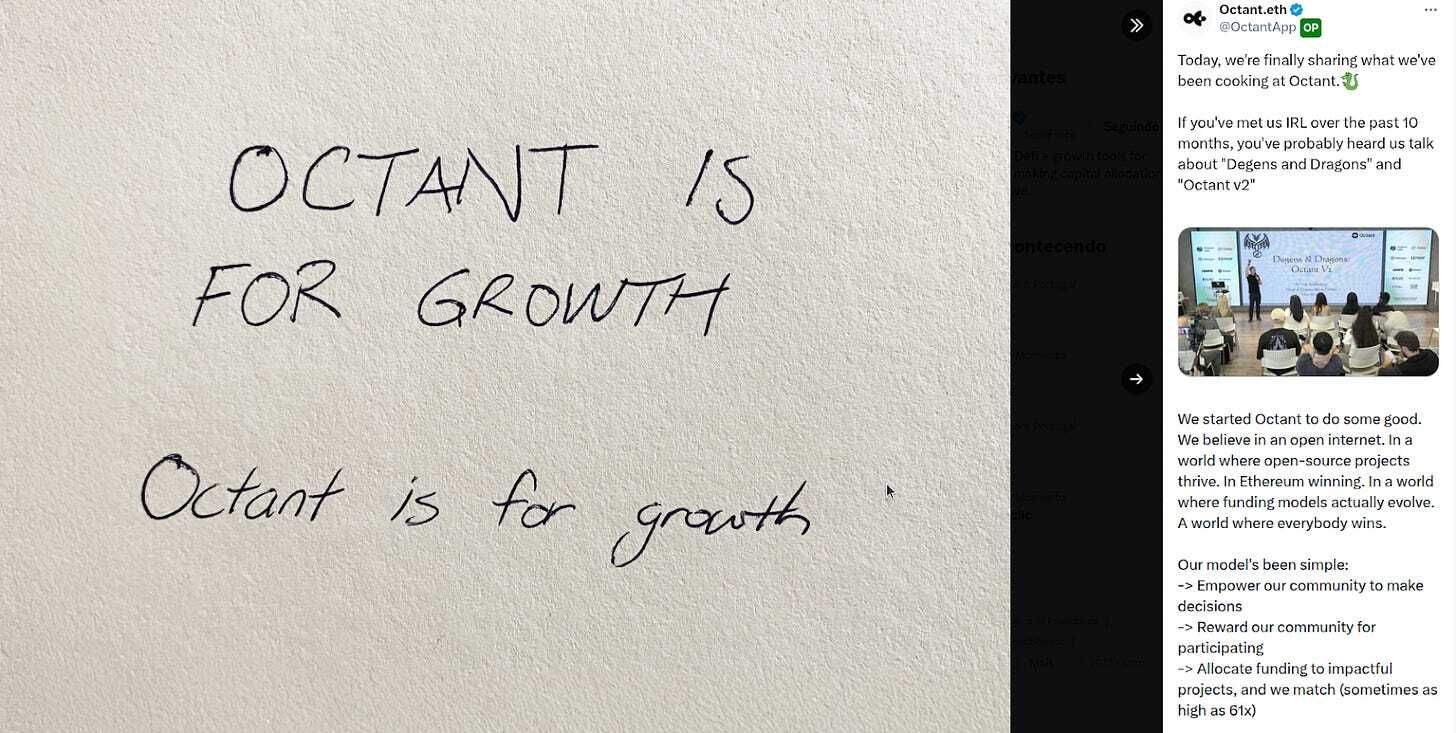 OCTANT IS
FOR GROWTH
Octant is for growth
vantes
Seguindo
DeFi + growth tools for
making capital allocation
ve.
ontecendo
Portugal
Portugal
Octant.eth
@OctantApp OP
Today, we're finally sharing what we've
been cooking at Octant.🐉
If you've met us IRL over the past 10
months, you've probably heard us talk
about "Degens and Dragons" and
"Octant v2"
Octant
Degens & Dragons:
Octant V2
We started Octant to do some good.
We believe in an open internet. In a
world where open-source projects
thrive. In Ethereum winning. In a world
where funding models actually evolve.
A world where everybody wins.
Our model's been simple:
-> Empower our community to make
decisions
-> Reward our community for
participating
-> Allocate funding to impactful
projects, and we match (sometimes as
high as 61x)